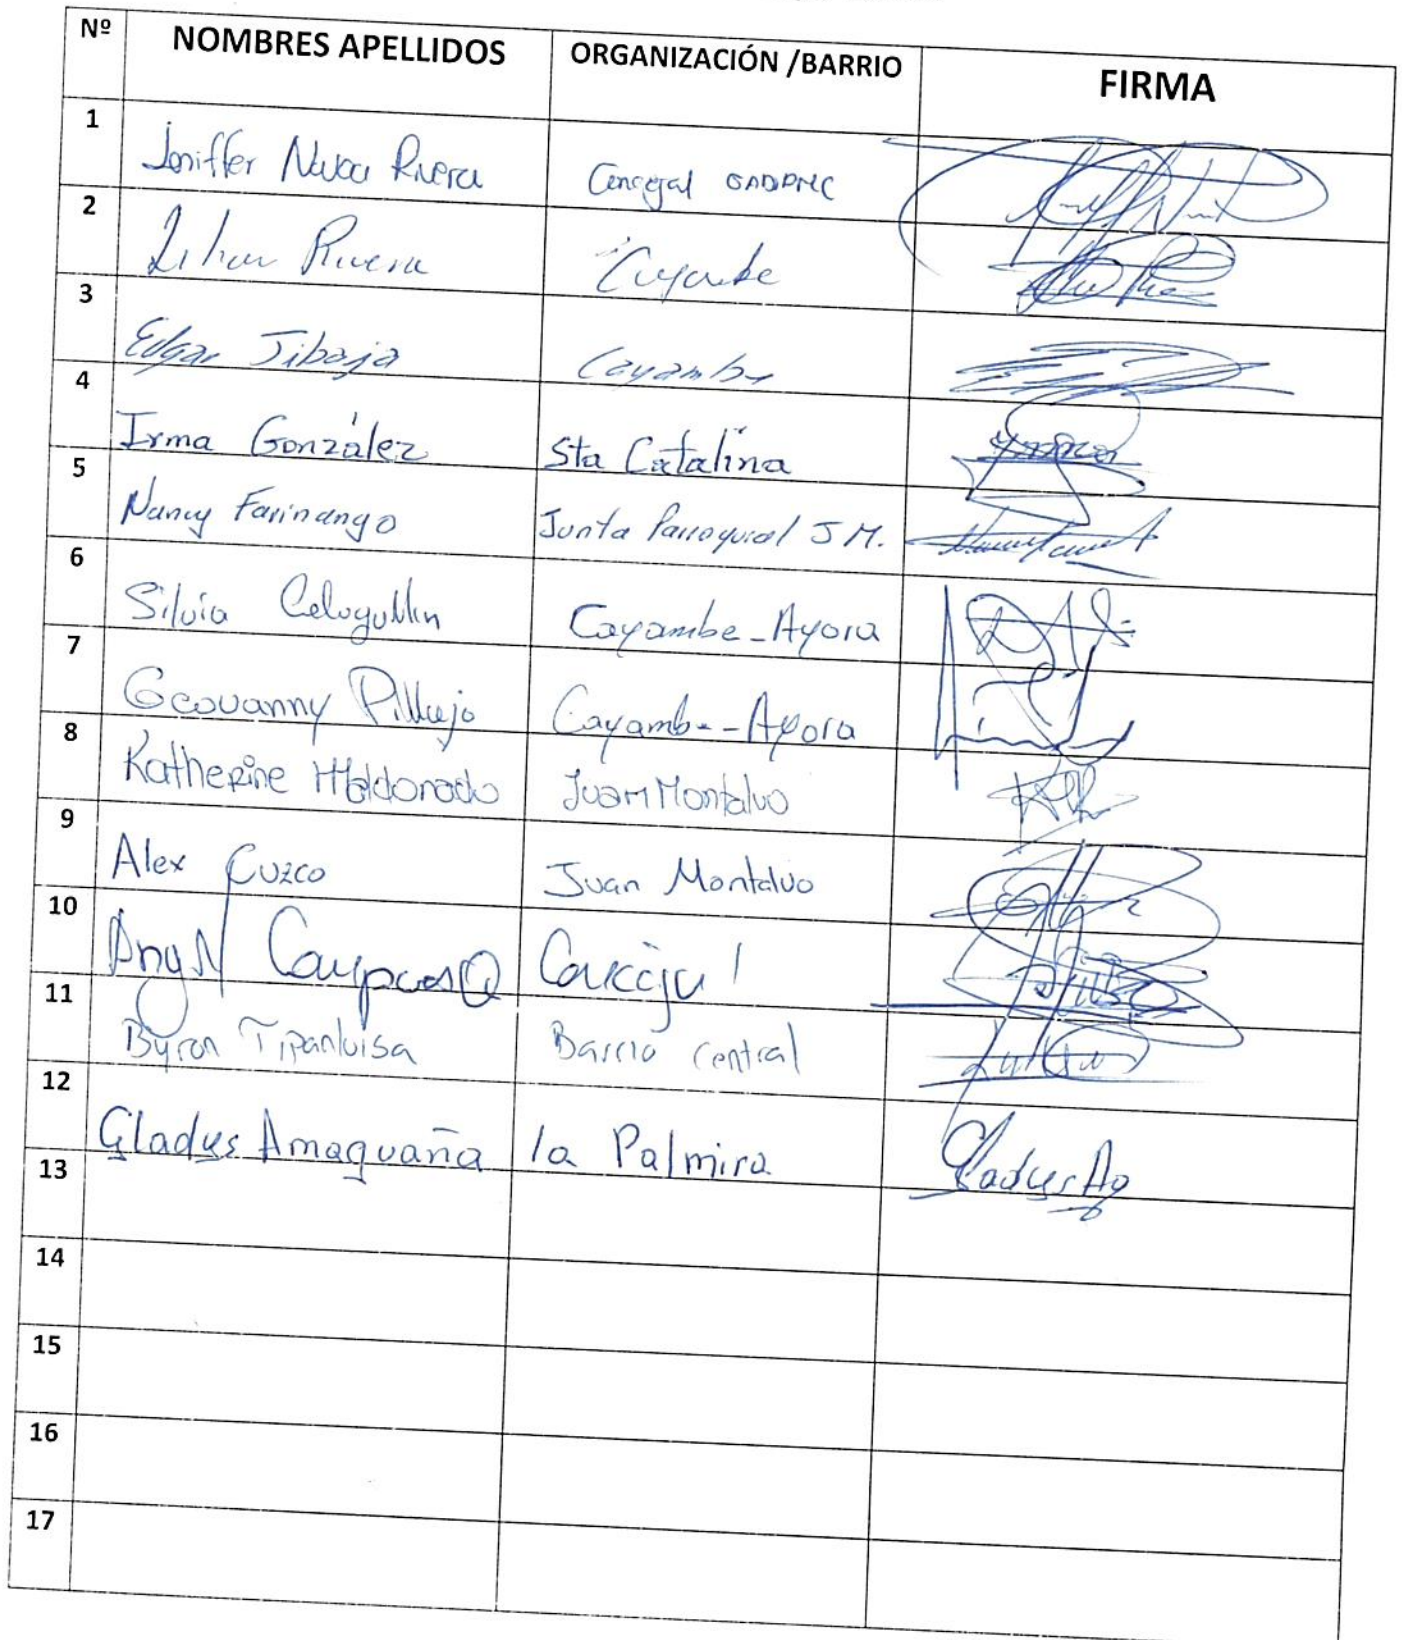 Nº NOMBRES APELLIDOS ORGANIZACIÓN /BARRIO FIRMA
1 Jeniffer Navas Rivera Concejal GADIPMC
2 Lilian Rivera Cayambe
3 Edgar Jibaja Cayambe
4 Irma González Sta Catalina
5 Nancy Farinango Junta Parroquial J M.
6 Silvia Cayambe-Ayora
7 Geovanny Pillajo Cayambe-Ayora
8 Katherine Maldonado Juan Montalvo
9 Alex Cuzco Juan Montalvo
10 Angel Concejal
11 Byron Tipanluisa Barrio Central
12 Gladys Amaguaña la Palmira Gladys Ag
13
14
15
16
17